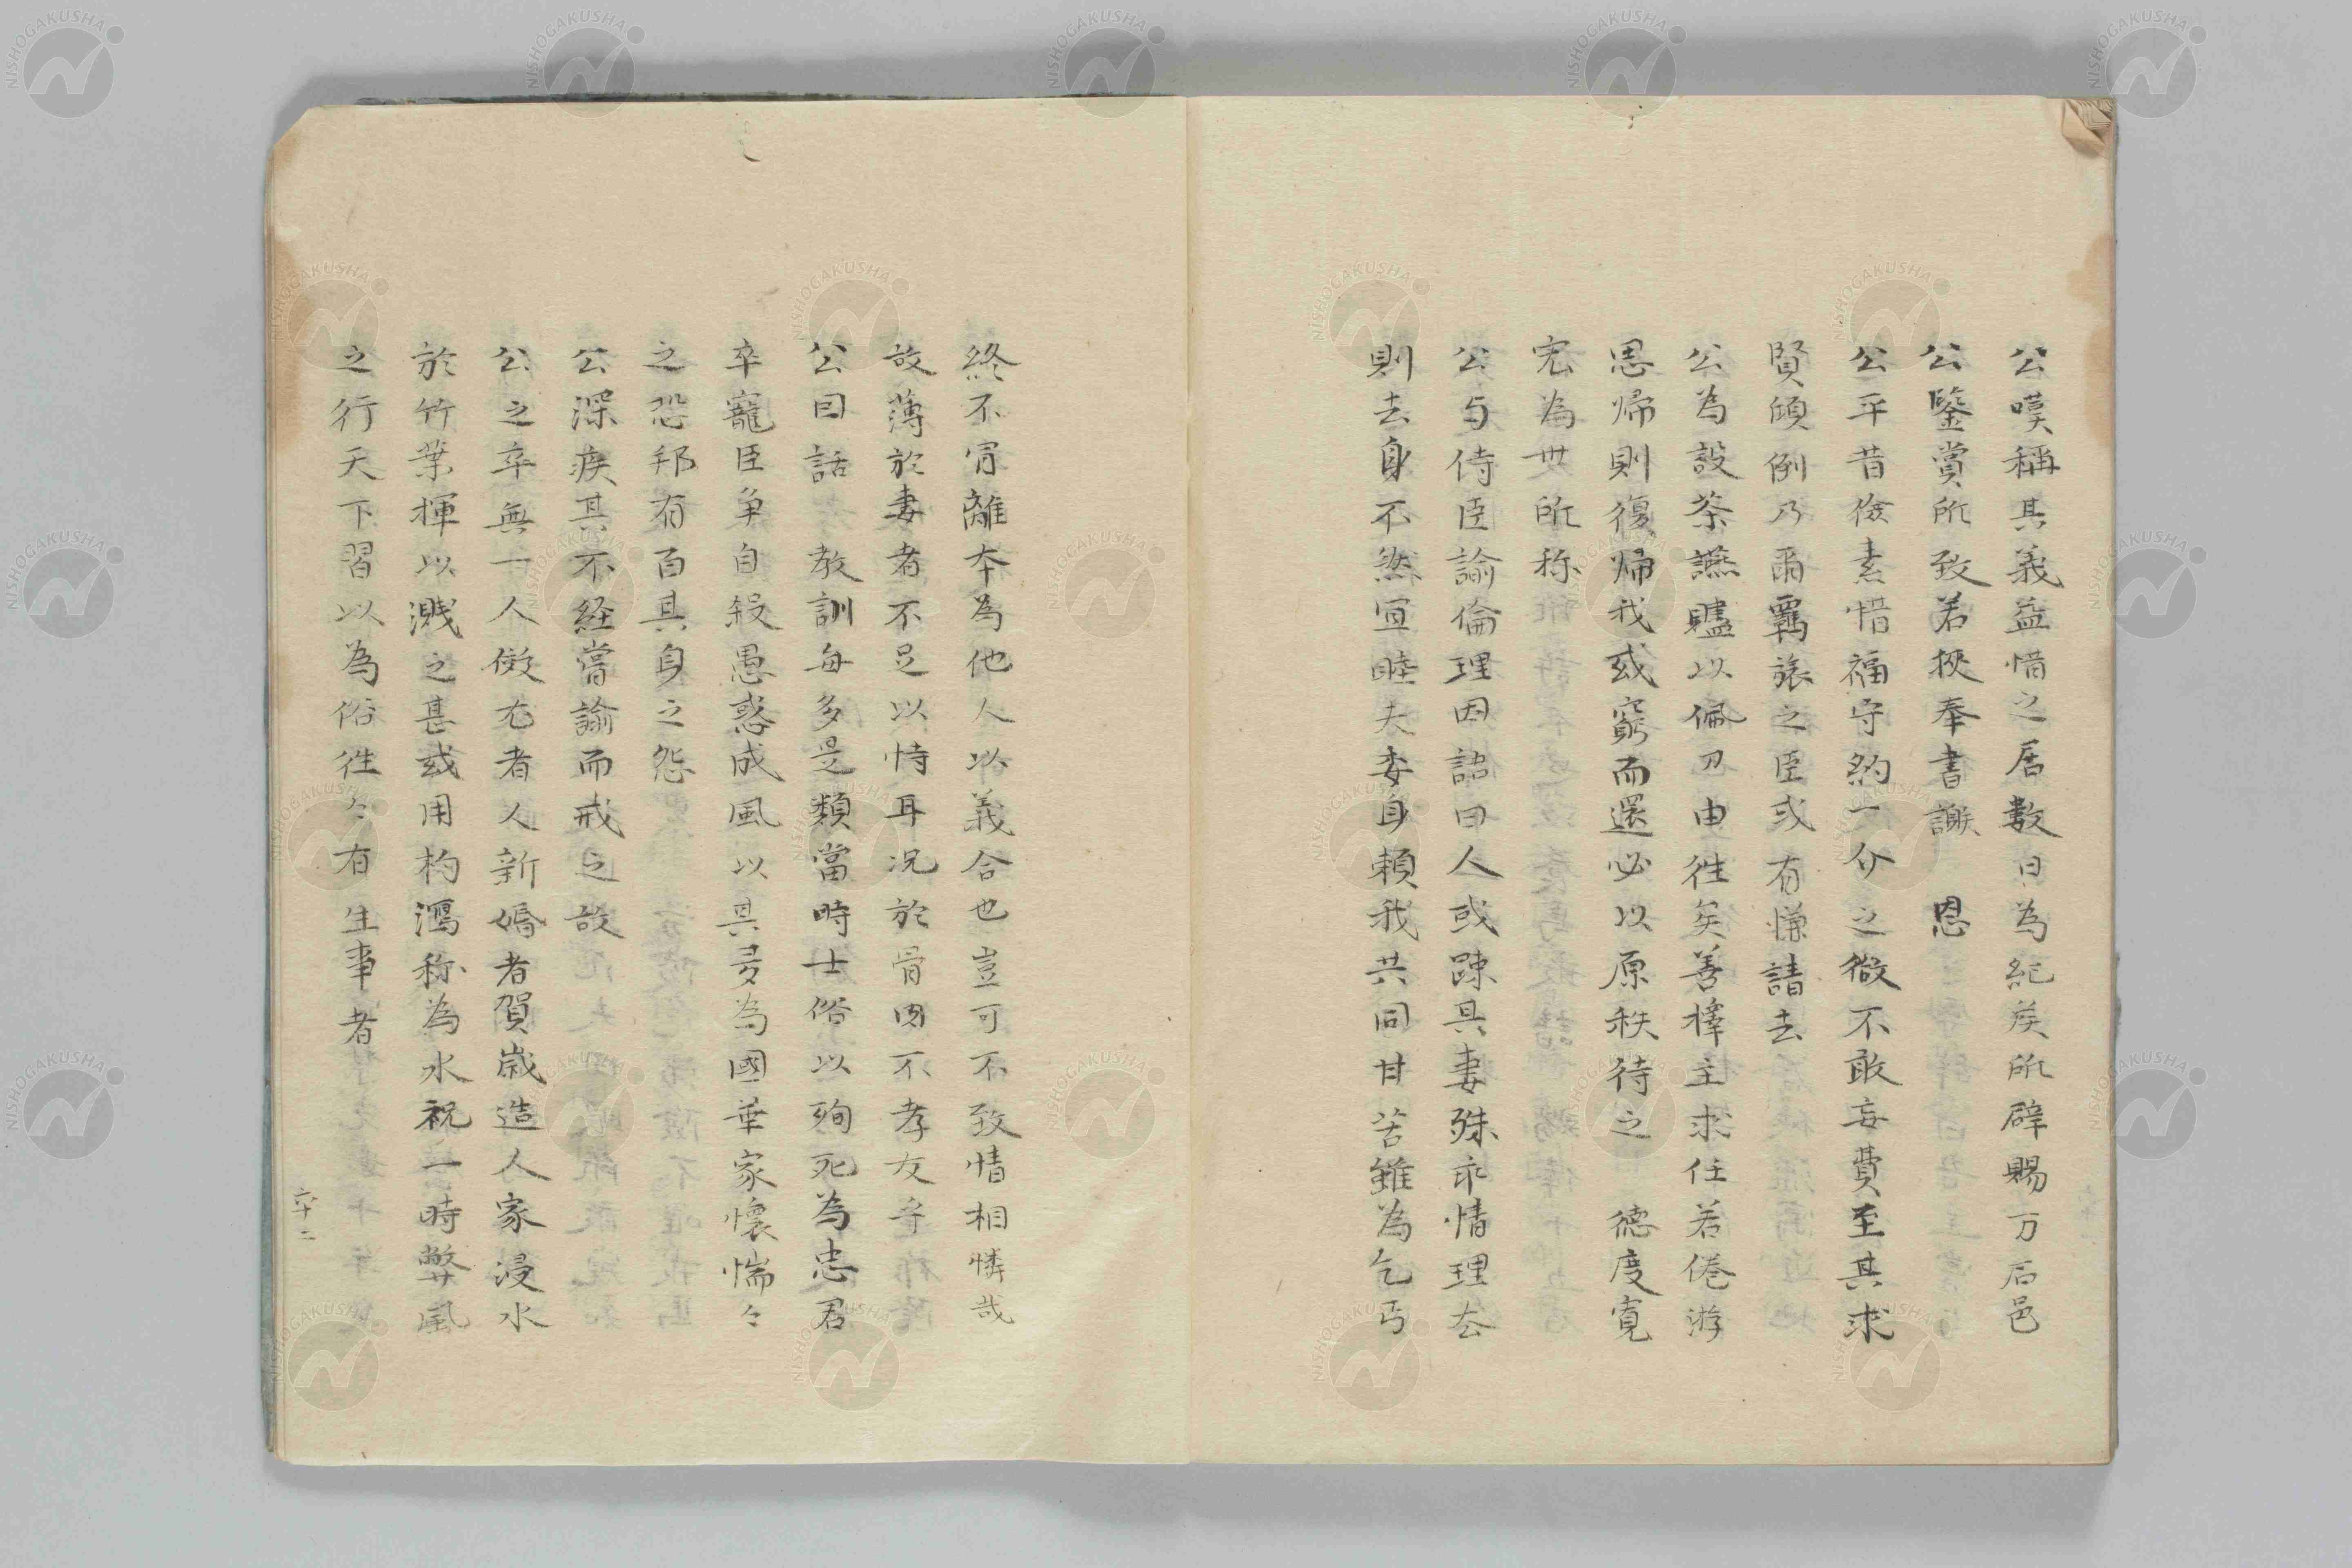 公嘆稱其義益惜之居數日為紀侯所辟賜万石邑
公鑒賞所致若挾奉書謝 恩
公平昔儉素惜福守約一介之微不敢妄費至其求
賢傾例乃爾羈旅之臣或有慊請去
公為設茶讌贐以佩刀由往矣善擇主求仕若倦游
思帰則復帰我或窮而還必以原秩待之 德度寛
宏為世所称
公与侍臣論倫理因語曰人或踈其妻殊乖情理去
則去身不然宜睦夫委身頼我共同甘苦雖為乞丐
終不肯離本為他人以義合也豈可不致情相憐哉
故薄於妻者不足以恃耳况於骨肉不孝友乎
公曰話教訓毎多是類當時士俗以殉死為忠君
卒寵臣争自殺愚惑成風以其多為國華家懷惴々
之恐邦有百其身之怨
公深疾其不経嘗諭而戒之故
公之卒無一人倣尤者人新婚者賀歳造人家浸水
於竹葉揮以濺之甚或用杓瀉称為水祝一時弊風
之行天下習以為俗往々有生事者
六十二
NISHOGAKUSHA